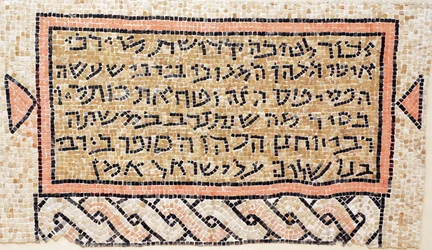 זכור לטובה קדושת מרי רבי
איסי הכהן המכובד בירבי שעשה
הפסיפוס הזה וטח את כותליו
בסיד מה שנתנדב במשתה
רבי יוחנן הכהן הסופר בירבי
בנו שלום על ישראל אמן